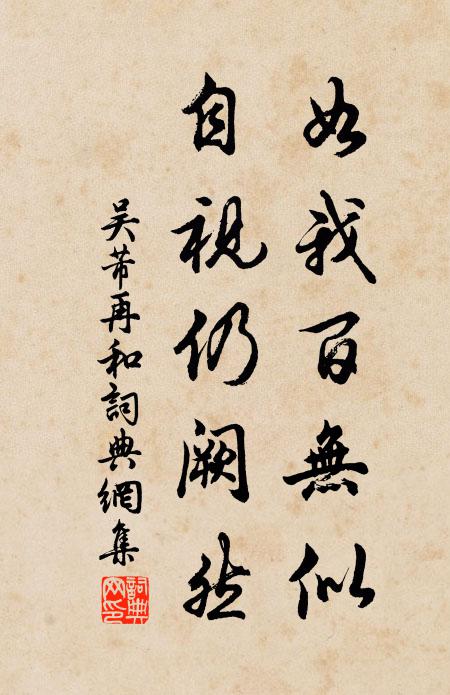 如我百無似
自視仍闕然
吴芾再和詞典網集
詞典網印